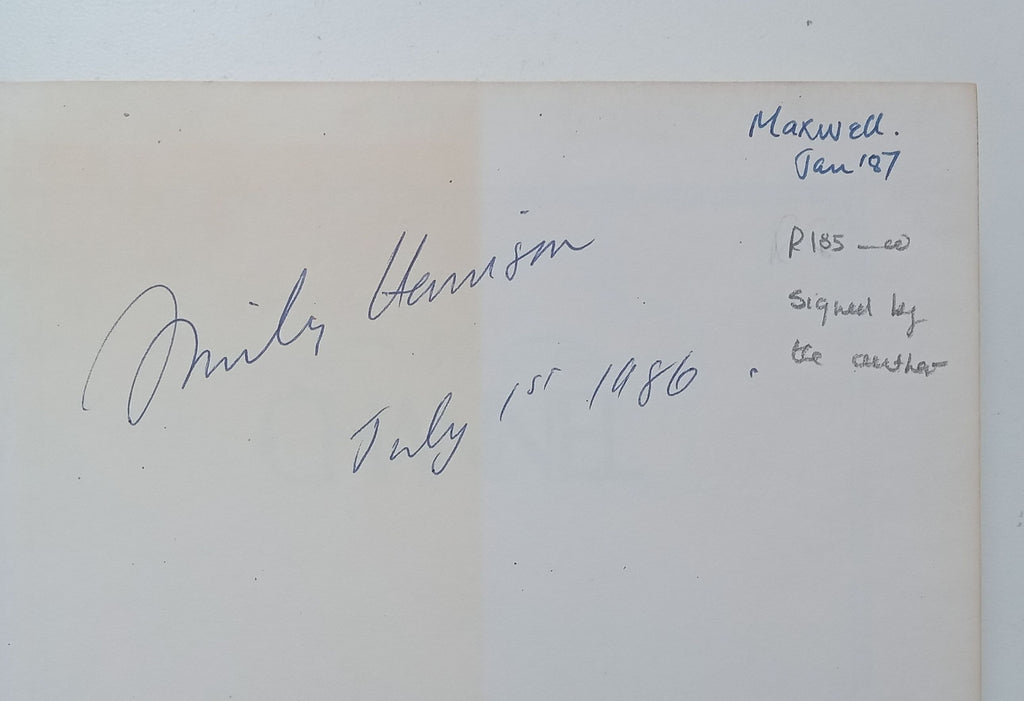 Maxwell.
Jan '87
R185—00
Signed by
the author
Harrison
July 1st 1986.